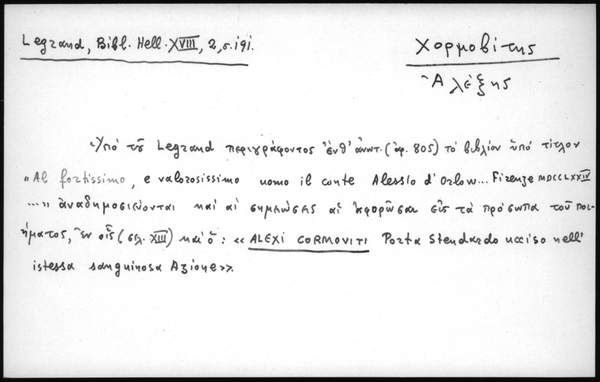 Legrand, Bibl. Hell. XVIII, 2, σ. 191.
Χορμοβίτης
Ἀλέξης
Ὑπό τοῦ Legrand περιγράφοντος ἐνθ' ἀνωτ. (ἀρ. 805) τό βιβλίον ὑπό τίτλον
«Al fortissimo, e valorosissimo uomo il conte Alessio d'Orlow... Firenze MDCCLXXIV
...» ἀναδημοσιεύονται καί αἱ σημειώσεις αἱ ἀφορῶσαι εἰς τά πρόσωπα τοῦ ποι-
ήματος, ἐν οἷς (σελ. XIII) καί ὁ: «ALEXI CORMOVITI Porta Stendardo ucciso nell'
istessa sanguinosa Azione».